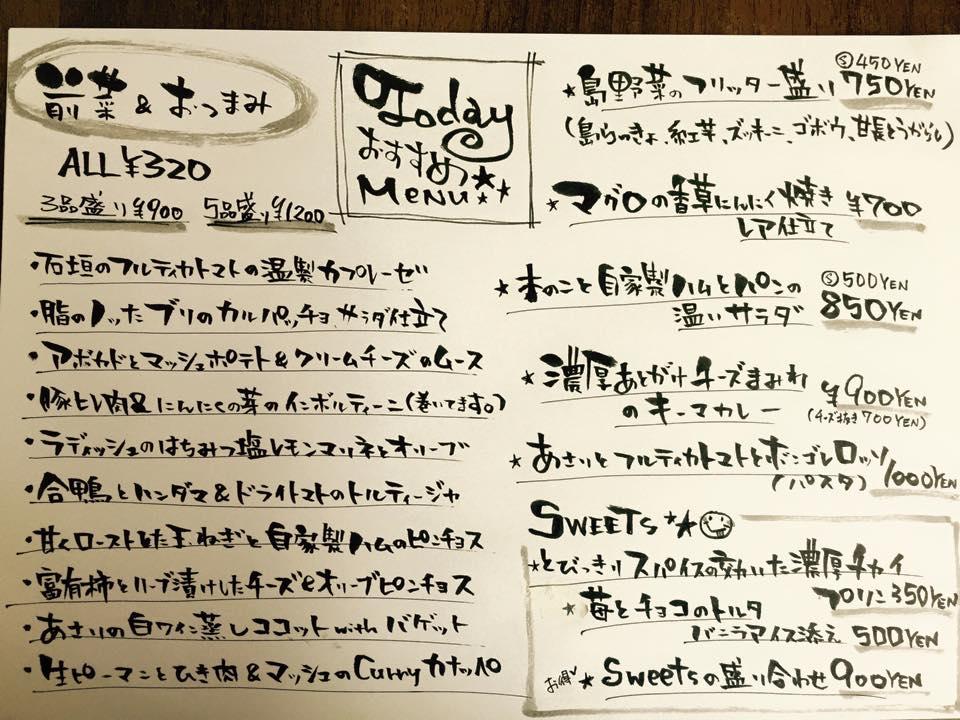 前菜 & おつまみ
ALL ¥320
3品盛り ¥900 5品盛り ¥1200
・石垣のフルティカトマトの温製カプレーゼ
・脂のノッたブリのカルパッチョ、サラダ仕立て
・アボカドとマッシュポテト&クリームチーズのムース
・豚ヒレ肉&にんにくの芽のインボルティーニ(巻いてます。)
・ラディッシュのはちみつ塩レモンマリネとオリーブ
・合鴨とハンダマ&ドライトマトのトルティージャ
・甘くローストした玉ねぎと自家製ハムのピンチョス
・富有柿とハーブ漬けしたチーズとオリーブピンチョス
・あさりの白ワイン蒸しココット with バゲット
・生ピーマンとひき肉&マッシュのCurryカナッペ
Today
おすすめ
MENU
Ⓢ450YEN
★島野菜のフリッター盛り 750YEN
(島らっきょ、紅芋、ズッキーニ、ゴボウ、甘長とうがらし)
★マグロの香草にんにく焼き ¥700
レア仕立て
Ⓢ500YEN
★きのこと自家製ハムとパンの
温いサラダ 850YEN
★濃厚あとがけチーズまみれ
のキーマカレー ¥900YEN
(チーズ抜き700YEN)
★あさりとフルティカトマトとボンゴレロッソ
(パスタ) 1000YEN
SWEETS ★★
★とびっきりスパイスの効いた濃厚チャイ
プリン 350YEN
★苺とチョコのトルタ
バニラアイス添え 500YEN
お得 ★Sweetsの盛り合わせ 900YEN